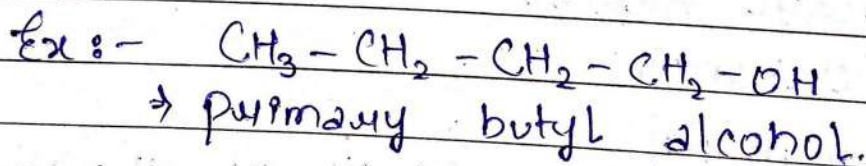 Ex :- CH₃ - CH₂ - CH₂ - CH₂ - OH
→ primary butyl alcohol.